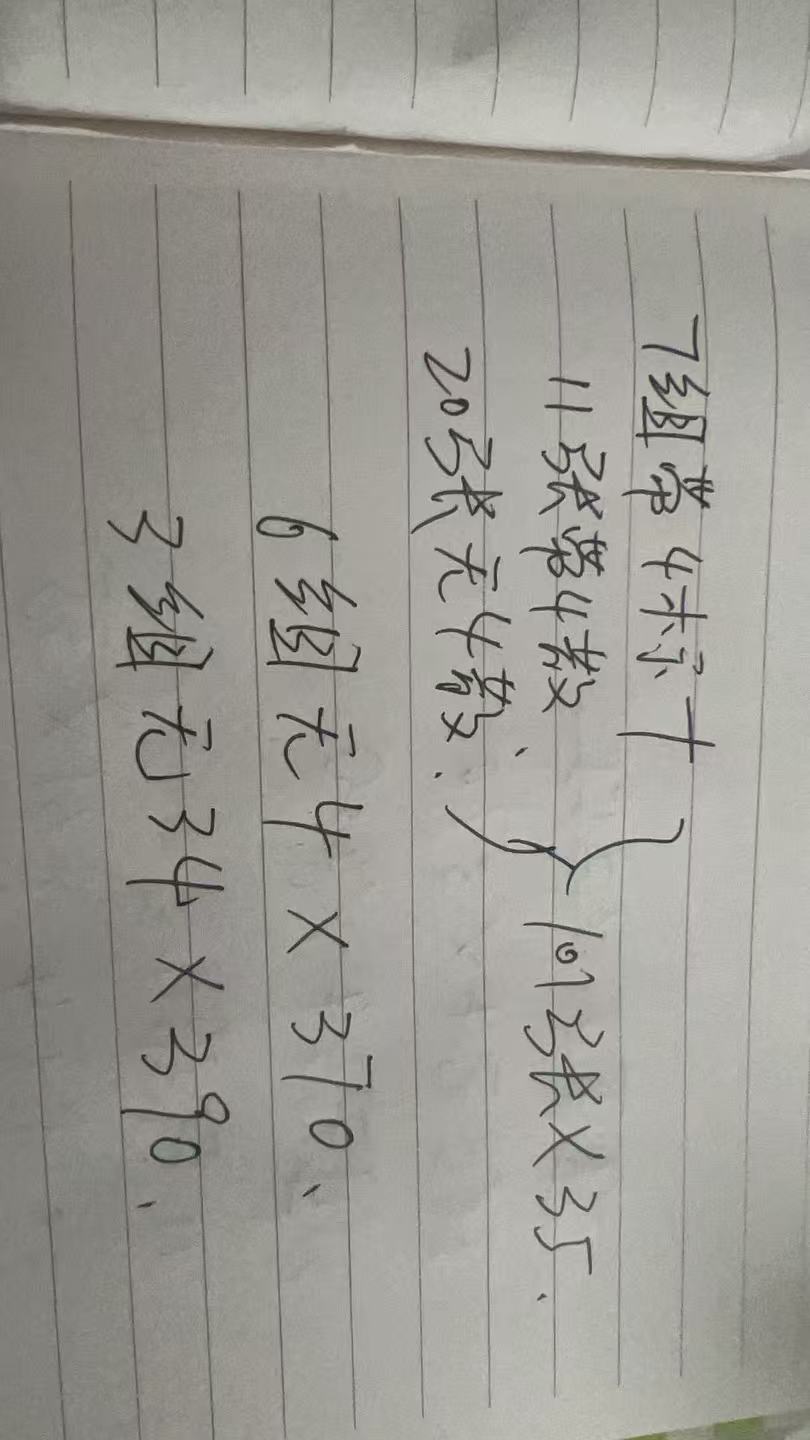 7组带4标十
11张带4散、 } 101张×35.
20张无4散.
6组无4×370、
3组无34×390、